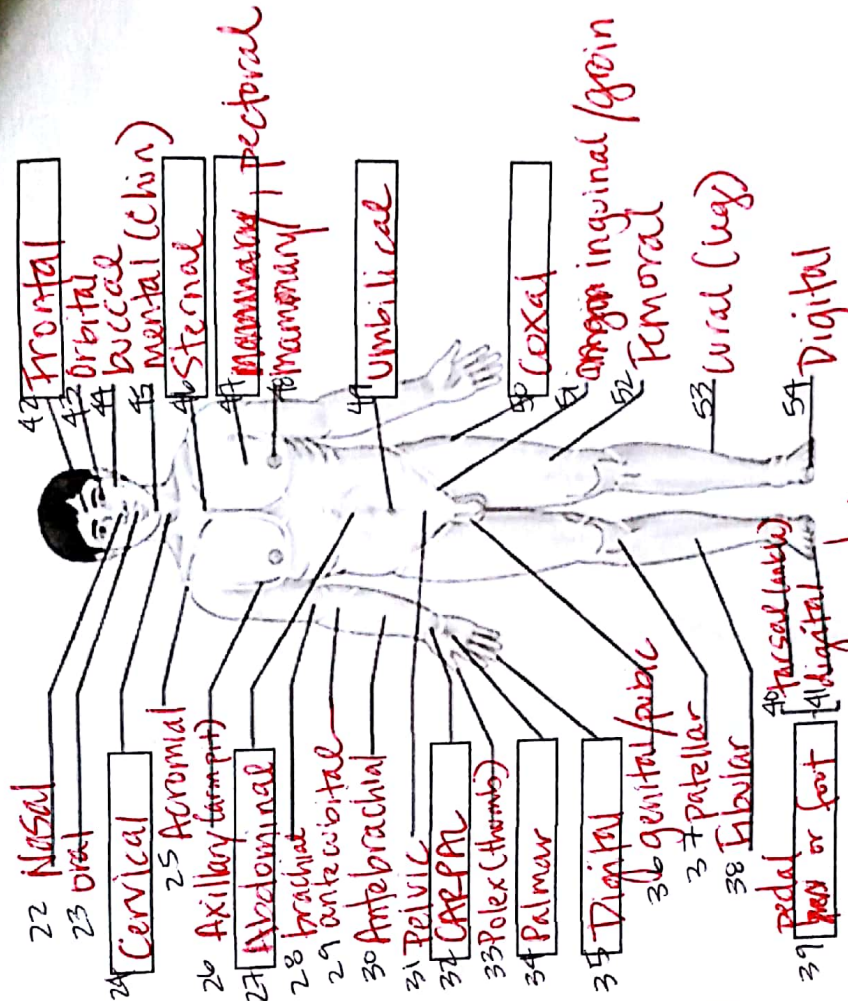 22 Nasal
23 oral
24 Cervical
25 Acromial
26 Axillary (armpit)
27 Abdominal
28 brachial
29 antecubital
30 Antebrachial
31 Pelvic
32 CARPAL
33 Polex (thumb)
34 Palmar
35 Digital
36 genital/pubic
37 patellar
38
39 pedal or foot
40 tarsal (ankle)
41 digital
42 Frontal
43 Orbital
44 buccal
45 mental (Chin)
46 Sternal
47 mammary, pectoral
48 mammary
49 Umbilical
50 Coxal
51 inguinal/groin
52 Femoral
53 (leg)
54 Digital